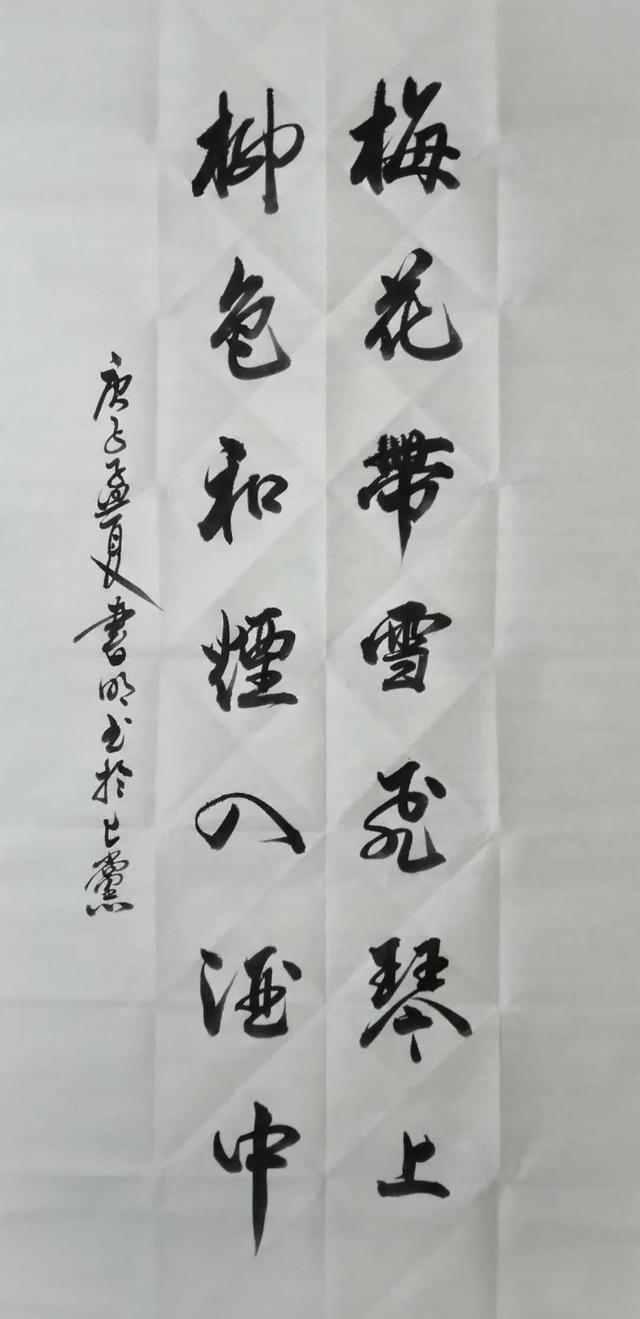 梅花帶雪飛琴上
柳色和煙入酒中
庚子孟夏書明书於上黨